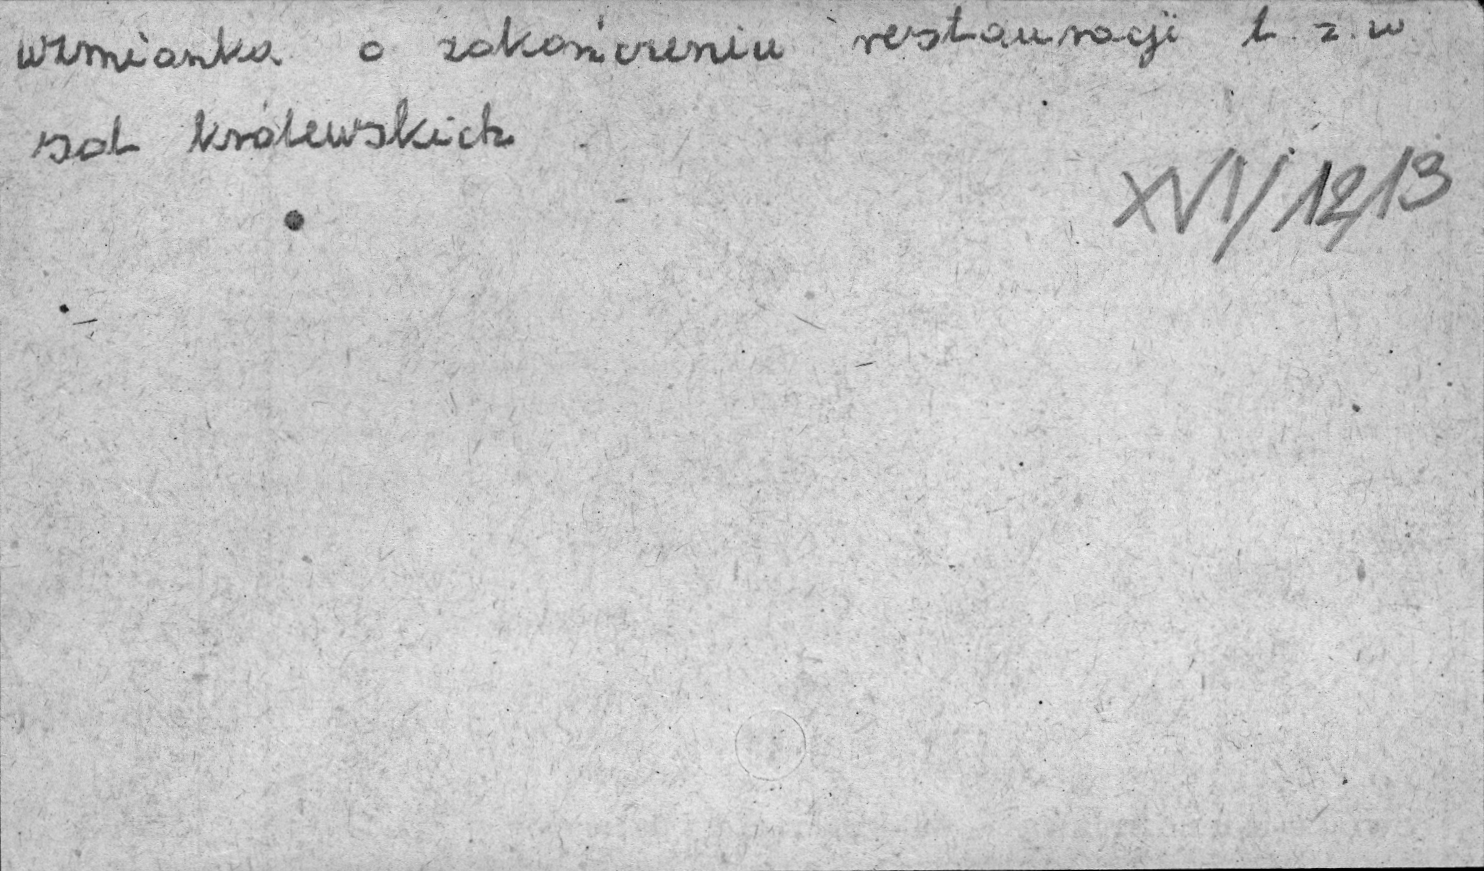 wzmianka o zakończeniu restauracji t. z. w
sal królewskich
XVI/1213